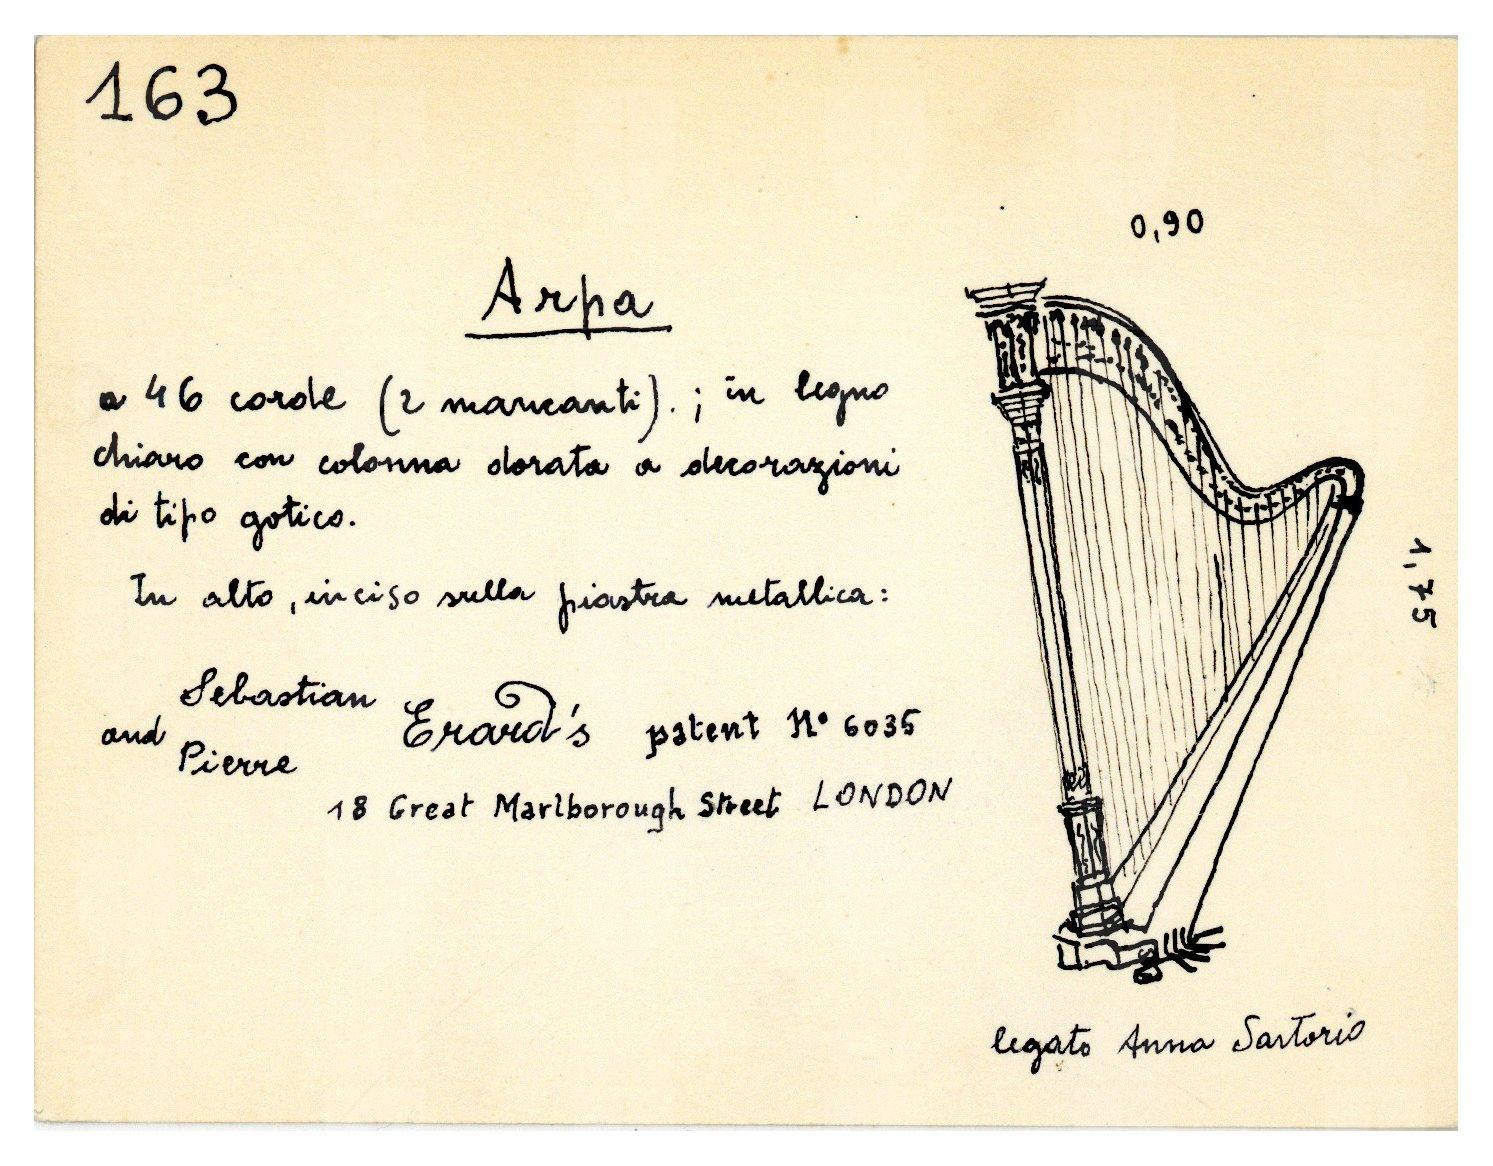 163
0,90
Arpa
a 46 corde (2 mancanti). ; in legno
chiaro con colonna dorata a decorazioni
di tipo gotico.
In alto, inciso sulla piastra metallica:
Sebastian
and Pierre Erard's patent N° 6035
18 Great Marlborough Street LONDON
1,75
legato Anna Sartorio